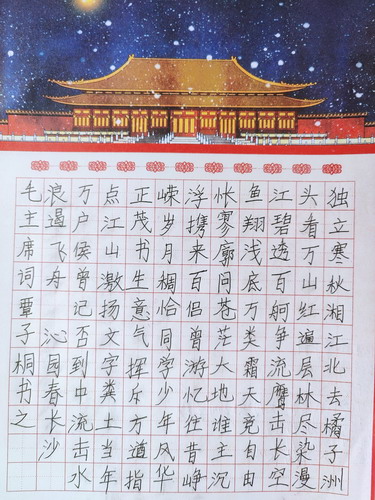 独立寒秋湘江北去橘子洲
头看万山红遍层林尽染漫
江碧透百舸争流鹰击长空
鱼翔浅底万类霜天竞自由
怅寥廓问苍茫大地谁主沉
浮携来百侣曾游忆往昔峥
嵘岁月稠恰同学少年风华
正茂书生意气挥斥方遒指
点江山激扬文字粪土当年
万户侯曾记否到中流击水
浪遏飞舟 沁园春长沙
毛主席词覃子桐书之